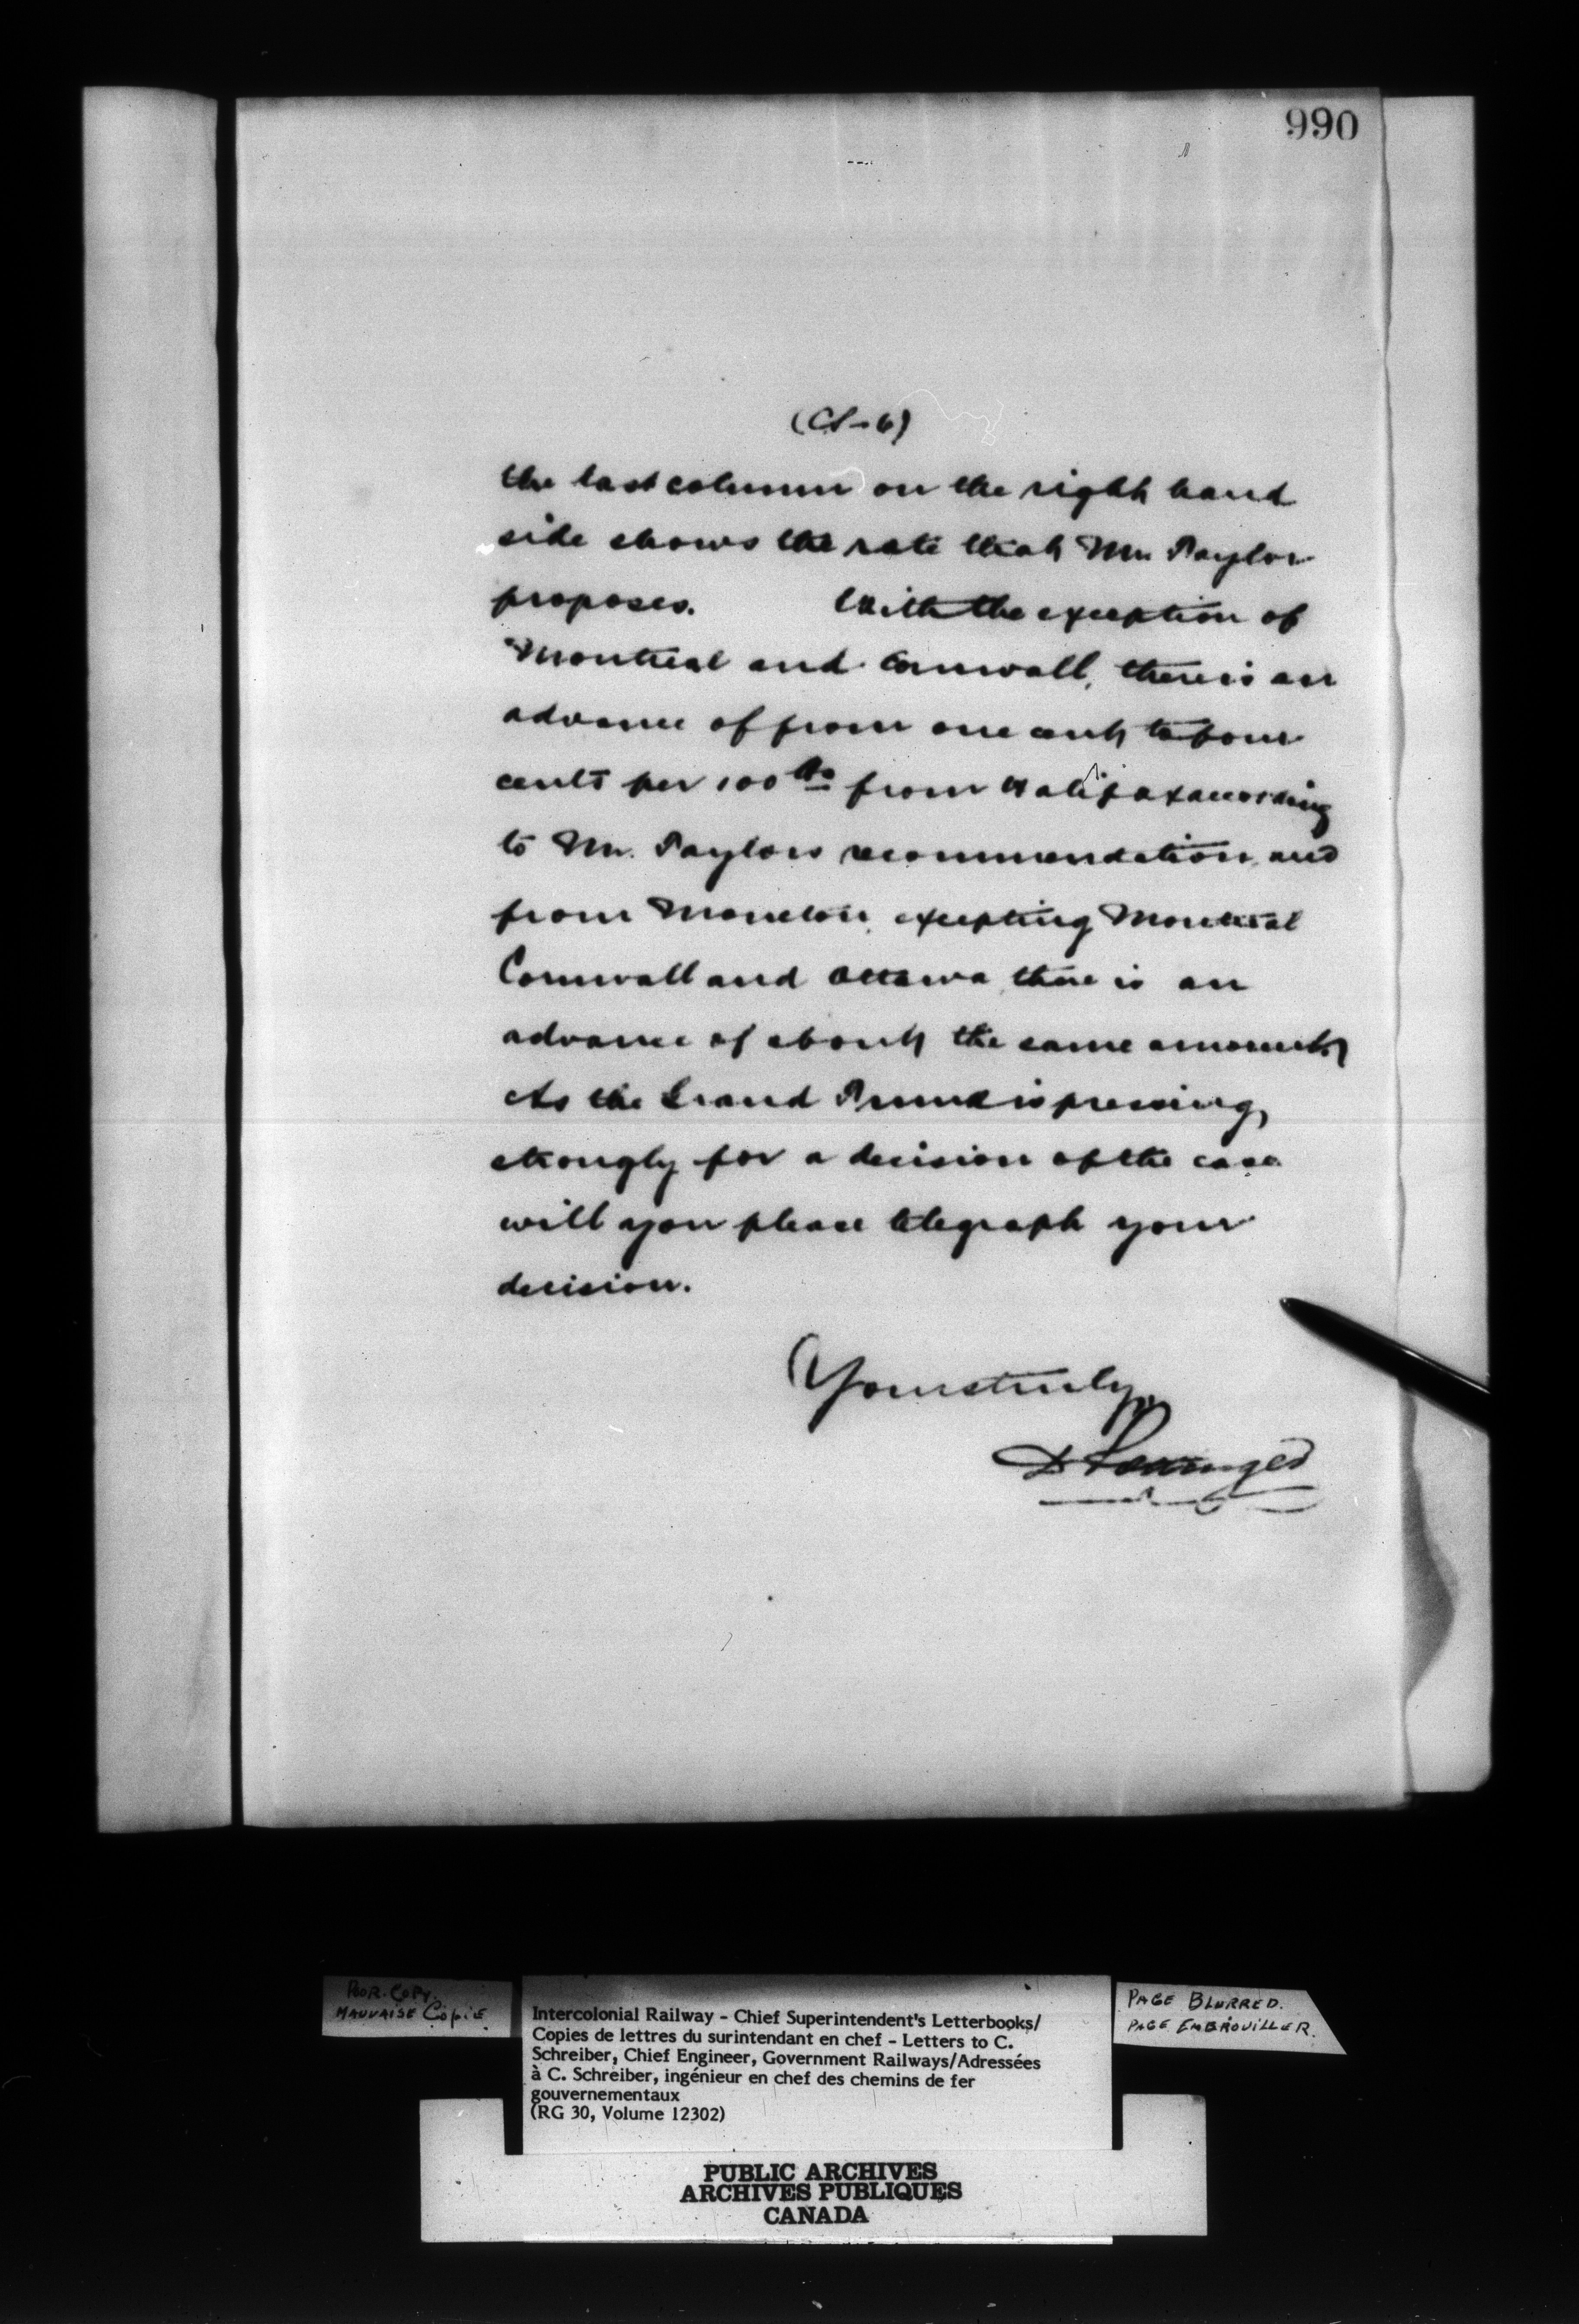 990
(CS-6)
the last column on the right hand
side shows the rate that Mr. Taylor
proposes. With the exception of
Montreal and Cornwall, there is an
advance of from one cent to four
cents per 100 lbs from Halifax according
to Mr. Taylors recommendation, and
from Moncton, excepting Montreal
Cornwall and Ottawa, there is an
advance of about the same amount,
As the Grand Trunk is pressing
strongly for a decision of the case
will you please telegraph your
decision.
Yours truly,
D Pottinger
POOR COPY.
MAUVAISE Copie
Intercolonial Railway - Chief Superintendent's Letterbooks/
Copies de lettres du surintendant en chef - Letters to C.
Schreiber, Chief Engineer, Government Railways/Adressées
à C. Schreiber, ingénieur en chef des chemins de fer
gouvernementaux
(RG 30, Volume 12302)
PAGE BLURRED.
PAGE EMBROUILLER.
PUBLIC ARCHIVES
ARCHIVES PUBLIQUES
CANADA